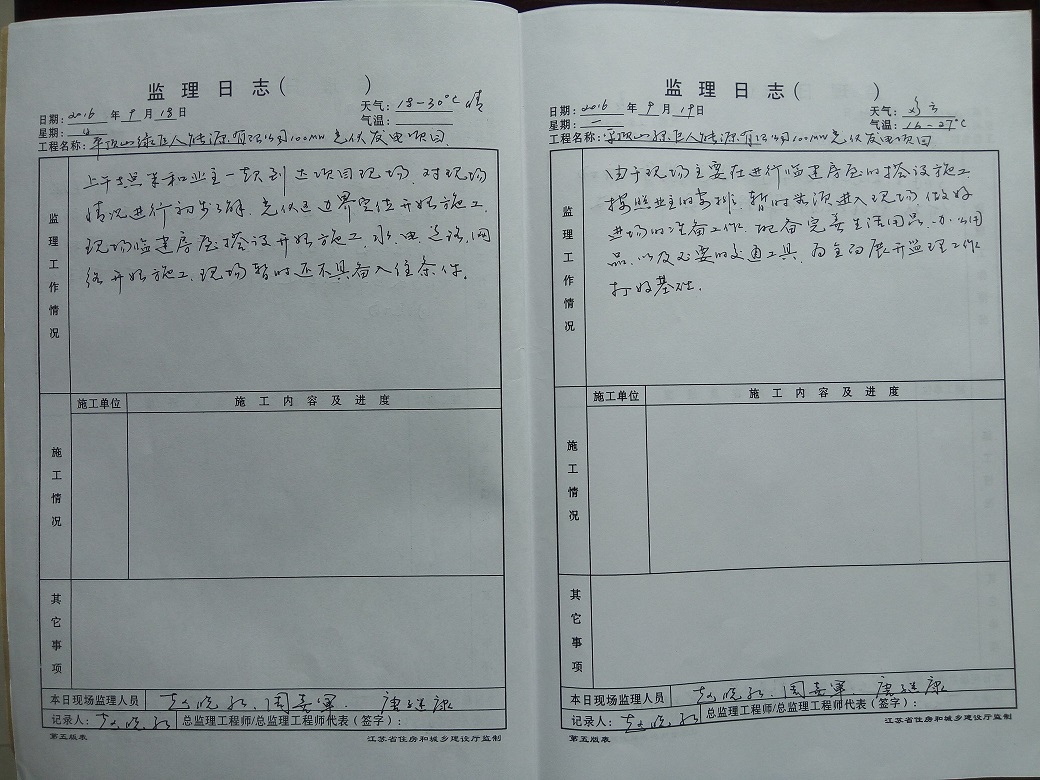 监 理 日 志 (          )
日期: 2016 年 9 月 18 日
天气: 18-30°C 晴
星期:
气温:
工程名称: 平顶山绿巨人能源有限公司100MW光伏发电项目
监理工作情况
上午 和业主一块到达项目现场. 对现场
情况进行初步了解, 光伏区边界定位开始施工.
现场临建房屋搭设开始施工, 水. 电. 道路, 网
络开始施工. 现场暂时还不具备入住条件.
施工情况
施工单位
施 工 内 容 及 进 度
其它事项
本日现场监理人员 赵晓 . 周 军. 唐继康
记录人: 赵晓
总监理工程师/总监理工程师代表(签字):
第五版表
江苏省住房和城乡建设厅监制
监 理 日 志 (          )
日期: 2016 年 9 月 19 日
天气: 多云
星期: 一
气温: 16-27°C
工程名称: 平顶山绿巨人能源有限公司100MW光伏发电项目
监理工作情况
由于现场主要在进行临建房屋的搭设施工.
按照业主的安排, 暂时 进入现场. 做好
进场的准备工作. 配备完善生活用品. 办公用
品. 以及必要的交通工具. 为全面展开监理工作
打好基础.
施工情况
施工单位
施 工 内 容 及 进 度
其它事项
本日现场监理人员 赵晓 . 周 军. 唐继康
记录人: 赵晓
总监理工程师/总监理工程师代表(签字):
第五版表
江苏省住房和城乡建设厅监制